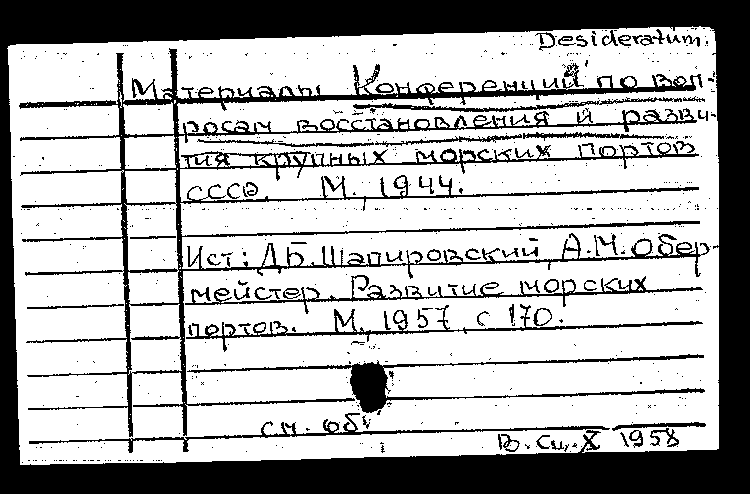 Desideratum.
Материалы Конференции по воп-
росам восстановления и разви-
тия крупных морских портов
СССР. М., 1944.
Ист: Д.Б. Шапировский, А.М. Обер-
мейстер. Развитие морских
портов. М., 1957, с 170.
см. об
X 1958